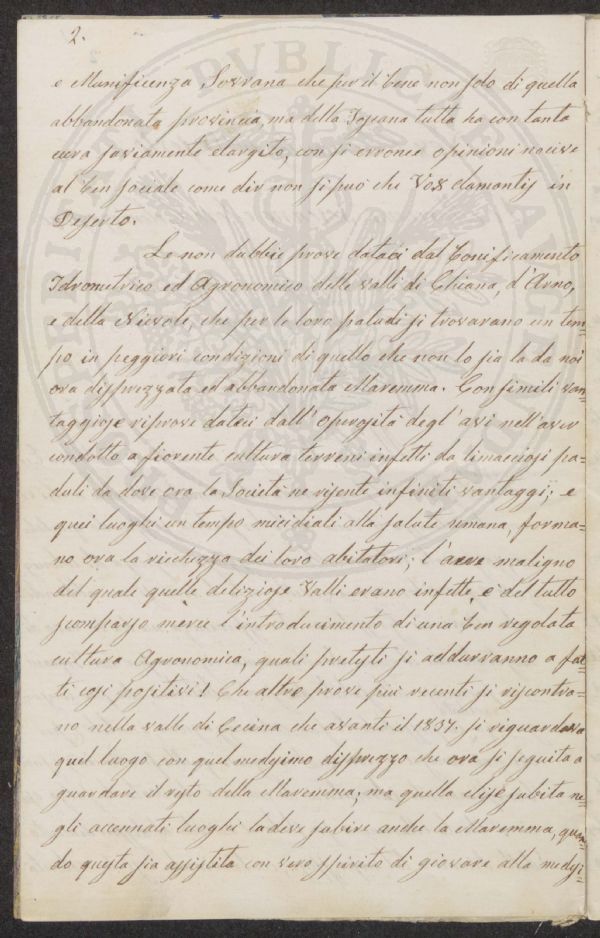 2.
e Munificenza Sovrana che per il bene non solo di quella
abbandonata provincia, ma della Toscana tutta ha con tanta
cura saviamente elargito, con si erronee opinioni nocive
al ben sociale come dir non si può che Vox clamantis in
Deserto.
Le non dubbie prove dataci dal bonificamento
Idrometrico ed Agronomico delle valli di Chiana, d'Arno,
e della Nievole, che per le loro paludi si trovarano un tem=
po in peggiori condizioni di quello che non lo sia la da noi
ora disprezzata ed abbandonata Maremma. Consimili van=
taggiose riprove dateci dall'operosità degl'avi nell'aver
condotto a fiorente cultura terreni infetti da limacciosi pa=
duli da dove ora la Società ne risente infiniti vantaggi; e
quei luoghi un tempo micidiali alla salute umana, forma=
no ora la ricchezza dei loro abitatori; l'aere maligno
del quale quelle deliziose Valli erano infette, è del tutto
scomparso mercè l'introducimento di una ben regolata
cultura Agronomica, quali pretesti si addurranno a fat=
ti così positivi! Che altre prove più recenti si riscontra=
no nella valle di Cecina che avanti il 1837. si riguardava
quel luogo con quel medesimo disprezzo che ora si seguita a
guardare il resto della Maremma; ma quella subita ne=
gli accennati luoghi la deve subire anche la Maremma, quan=
do questa sia assistita con vero spirito di giovare alla medesi=